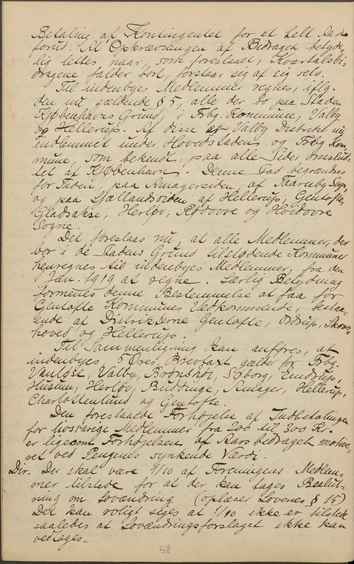 Betaling af Kontingentet for et helt Aar
forud. Til Opkrævningen af Bidraget betyde-
lig lettes, naar, som foreslaaet, Kvartalsbi-
dragene falder bort, foreslaar sig af sig selv.
Til indenbyes Medlemmer regnes, iflg.
den nu gældende § 5, alle der bo paa Staden
Københavns Grund, i Frbg. Kommune, Valby
og Hellerup. Af dem er Valby Distrikt nu
indlemmet under Hovedstaden og Frbg. Kom-
mune, som bekendt, paa alle Sider omslut-
tet af København. Denne Stad begrændses
for Tiden paa Amagersiden af Taarnby Sogn
og paa Sjællandssiden af Hellerup, Gentofte,
Gladsakse, Herløv, Rødovre og Hvidovre
Sogne.
Det foreslaas nu, at alle Medlemmer, der
bor i de Stadens Grund tilstødende Kommuner
henregnes til indenbyes Medlemmer, fra den
1. Jan. 1919 at regne. Særlig Betydning
formenes denne Bestemmelse at faa for
Gentofte Kommunes Vedkommende, bestaa-
ende af Distrikterne Gentofte, Ordrup, Skovs-
hoved og Hellerup.
Til Sammenligning kan anføres, at
indenbyes 5 Øres Brevtaxt gælder for Frbg.
Vanløse, Valby, Brønshøj, Søborg, Emdrup,
Husum, Herløv, Bispebjerg, Amager, Hellerup,
Charlottenlund og Gentofte.
Den foreslaaede Forhøjelse af Indbetalingen
for livsvarige Medlemmer fra 200 til 300 Kr.
er ligesom Forhøjelsen af Aarsbidraget motive-
ret ved Pengenes synkende Værdi.
Dir. Der skal være 1/10 af Foreningens Medlem-
mer tilstede for at der kan tages Beslut-
ning om Lovændring (oplæser Lovenes § 15)
Det kan roligt siges at 1/10 ikke er tilstede
saaledes at Lovændringsforslaget ikke kan
vedtages.
58